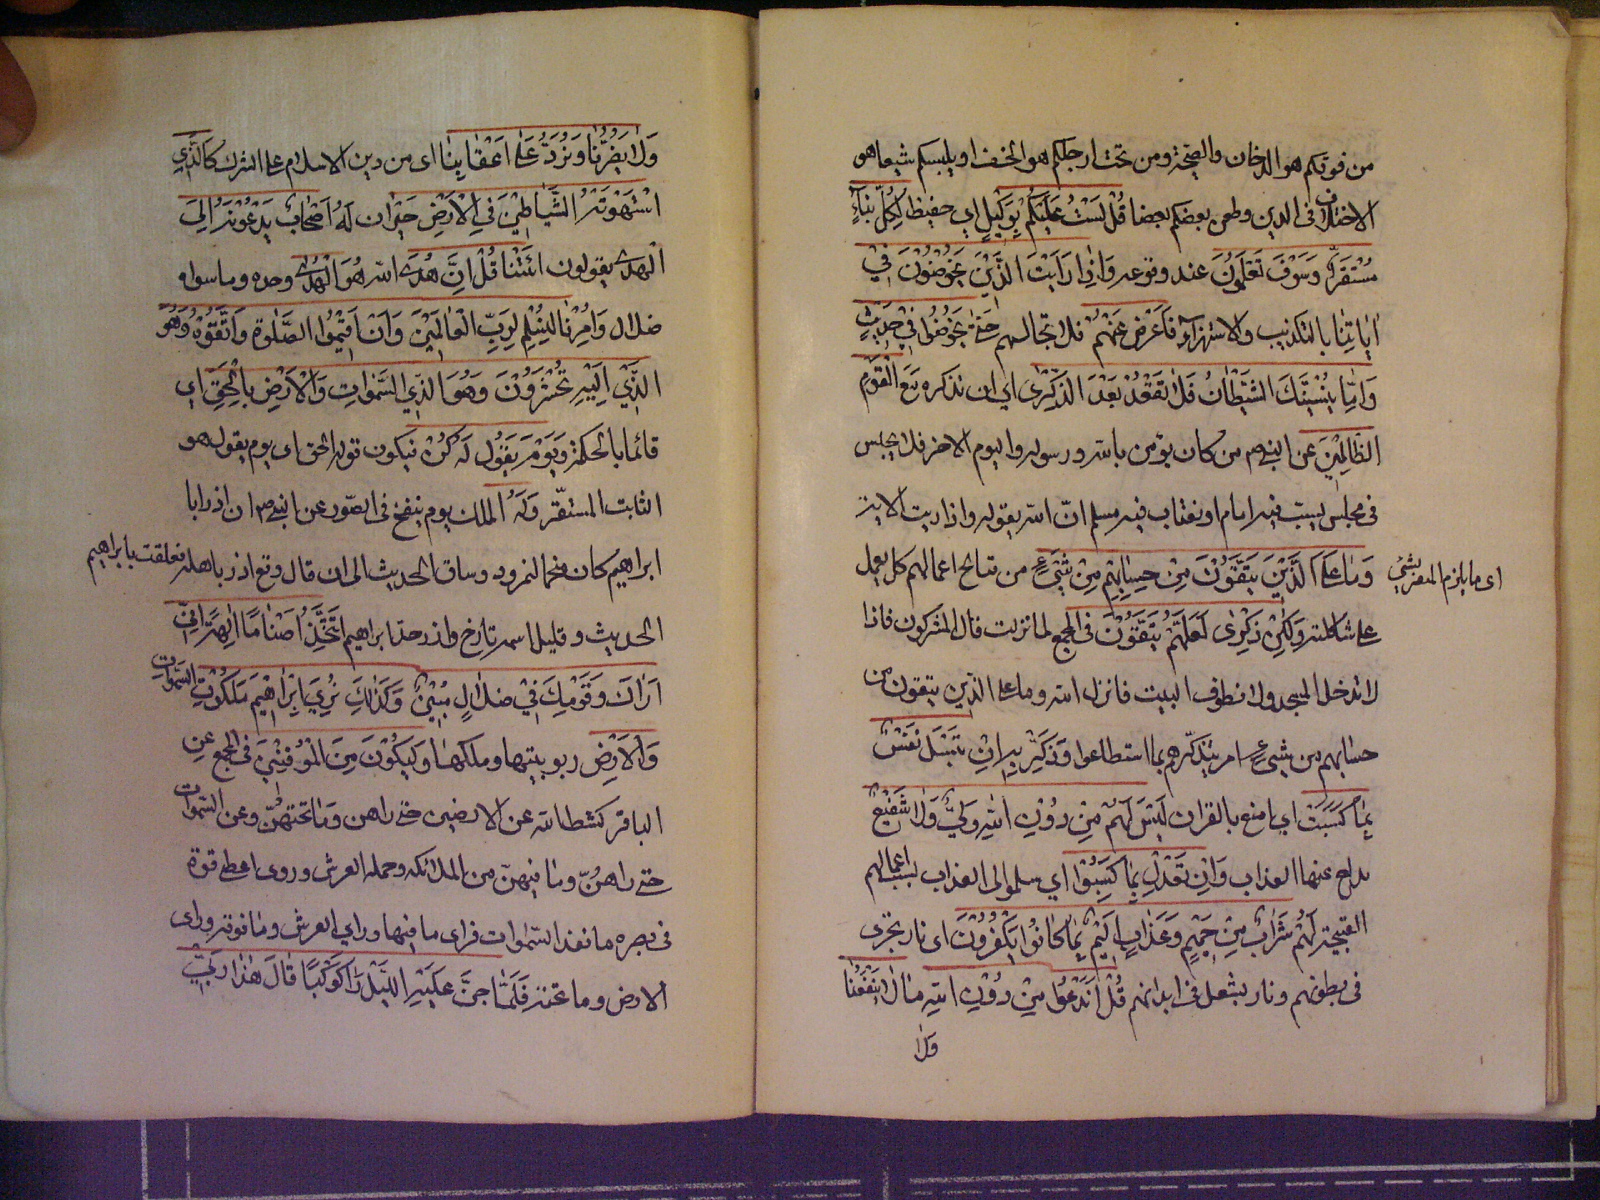 من فوقكم هو الدخان والصيحة ومن تحت ارجلكم هو الخسف او يلبسكم شيعا هو
الاختلاف في الدين وطعن بعضكم بعضا قُلْ لَسْتُ عَلَيْكُمْ بِوَكِيلٍ اي حفيظ لِكُلِّ نَبَاءٍ
مُسْتَقَرٌّ وَسَوْفَ تَعْلَمُونَ عند وقوعه وَاِذا رَاَيْتَ الَّذينَ يَخُوضُونَ فى
اياتِنا بالتكذيب والاستهزاء فَاَعْرِضْ عَنْهُمْ فلا تجالسهم حَتّى يَخُوضُوا فى حَديثٍ
وَاِمّا يُنْسِيَنَّكَ الشَّيْطانُ فَلا تَقْعُدْ بَعْدَ الذِّكْرى اي ان تذكره مَعَ الْقَوْمِ
الظّالِمينَ عن النبي ص من كان يؤمن بالله ورسوله واليوم الاخر فلا يجلس
في مجلس يسب فيه امام او يغتاب فيه مسلم ان الله يقول واذا رايت الاية
وَما عَلَى الَّذينَ يَتَّقُونَ مِنْ حِسابِهِمْ مِنْ شَىْءٍ من قبائح اعمالهم كل يعمل
اى ما يلزم المتقين شئ
على شاكلته وَلكِنْ ذِكْرى لَعَلَّهُمْ يَتَّقُونَ في المجمع لما نزلت قال المشركون فاذا
لا ندخل المسجد ولا نطوف البيت فانزل الله وما على الذين يتقون من
حسابهم من شىء امر بتذكرهم بما استطاعوا وَذَكِّرْ بِهِ اَنْ تُبْسَلَ نَفْسٌ
بِما كَسَبَتْ اي امنع بالقران لَيْسَ لَهُمْ مِنْ دُونِ اللهِ وَلِىٌّ وَلا شَفيعٌ
يدفع عنها العذاب وَاِنْ تَعْدِلْ بِما كَسَبُوا اي سلموا الى العذاب بسبب اعمالهم
القبيحة لَهُمْ شَرابٌ مِنْ حَميمٍ وَعَذابٌ اَليمٌ بِما كانُوا يَكْفُرُونَ اى نار تجرى
في بطونهم ونار يشعل في ابدانهم قُلْ اَنَدْعُوا مِنْ دُونِ اللهِ ما لا يَنْفَعُنا
ولا
وَلا يَضُرُّنا وَنُرَدُّ عَلى اَعْقابِنا اى من دين الاسلام على الشرك كَالَّذِي
اسْتَهْوَتْهُ الشَّياطينُ فِي الْاَرْضِ حَيْرانَ لَهُ اَصْحابٌ يَدْعُونَهُ اِلَى
الْهُدَى يقولون ائْتِنا قُلْ اِنَّ هُدَى اللهِ هُوَ الْهُدى وحده وما سواه
ضلال وَاُمِرْنا لِنُسْلِمَ لِرَبِّ الْعالَمينَ وَاَنْ اَقيمُوا الصَّلوةَ وَاتَّقُوهُ وَهُوَ
الَّذي اِلَيْهِ تُحْشَرُونَ وَهُوَ الَّذي السَّمواتِ وَالْاَرْضِ بِالْحَقِّ اى
قائما بالحكمة وَيَوْمَ يَقُولُ لَهُ كُنْ فيكون قوله الحق اى يوم يقول هو
الثابت المستقر وَلَهُ الملك يوم ينفخ في الصور عن النبي ص ان اذر ابا
ابراهيم كان منجما لنمرود وساق الحديث الى ان قال وقع اذر باهله فعلقت بابراهيم
الحديث وقليل اسمه تارخ واذر جد ابراهيم اَتَتَّخِذُ اَصْنامًا الِهَةً اِنّي
اَراكَ وَقَوْمَكَ في ضَلالٍ مُبينٍ وَكَذلِكَ نُرِيَ اِبْراهيمَ مَلَكُوتَ السَّمواتِ
وَالْاَرْضِ ربوبيتها وملكها وَلِيَكُونَ مِنَ الْمُوقِنينَ في المجمع عن
الباقر كشط الله عن الارضين حتى راهن وما تحتهن وعن السموات
حتى راهن وما فيهن من الملائكه وحمله العرش وروى اعطى قوة
في بصره ما نفذ السموات فراى ما فيها وراى العرش وما فوقه وراى
الارض وما تحته فَلَمّا جَنَّ عَلَيْهِ اللَّيْلُ رَا كَوْكَبًا قالَ هذا رَبّي